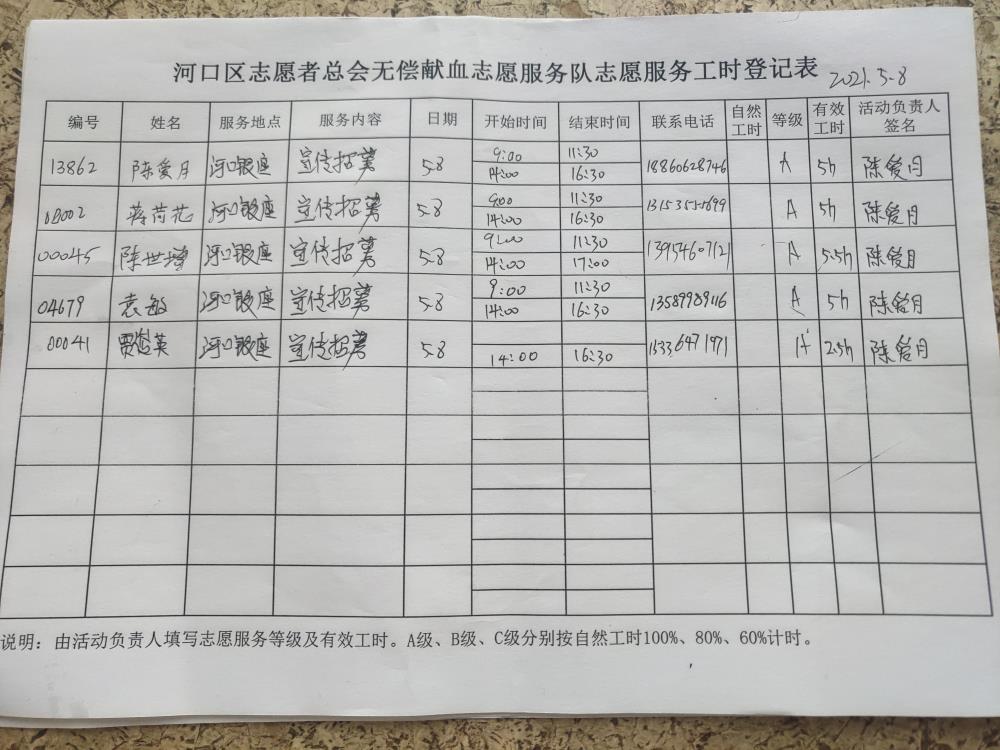 河口区志愿者总会无偿献血志愿服务队志愿服务工时登记表 2021.5.8
编号 姓名 服务地点 服务内容 日期 开始时间 结束时间 联系电话 自然工时 等级 有效工时 活动负责人签名
13862 陈爱月 河口银座 宣传招募 5.8 9:00 11:30 18860628746 A 5h 陈爱月
14:00 16:30
00002 蒋荷花 河口银座 宣传招募 5.8 9:00 11:30 A 5h 陈爱月
14:00 16:30
00045 陈世增 河口银座 宣传招募 5.8 9:00 11:30 13954607121 A 5.5h 陈爱月
14:00 17:00
04679 袁敏 河口银座 宣传招募 5.8 9:00 11:30 13589989116 A 5h 陈爱月
14:00 16:30
00041 河口银座 宣传招募 5.8 14:00 16:30 15336471971 A 2.5h 陈爱月
说明：由活动负责人填写志愿服务等级及有效工时。A级、B级、C级分别按自然工时100%、80%、60%计时。